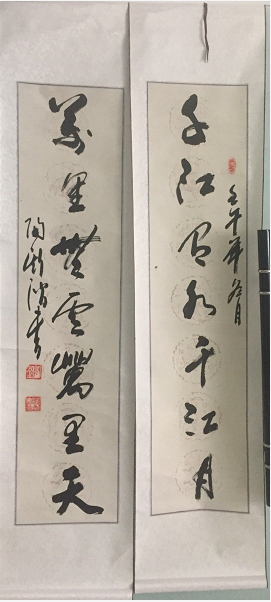 壬午年冬月
千江有水千江月
萬里無雲萬里天
陶書